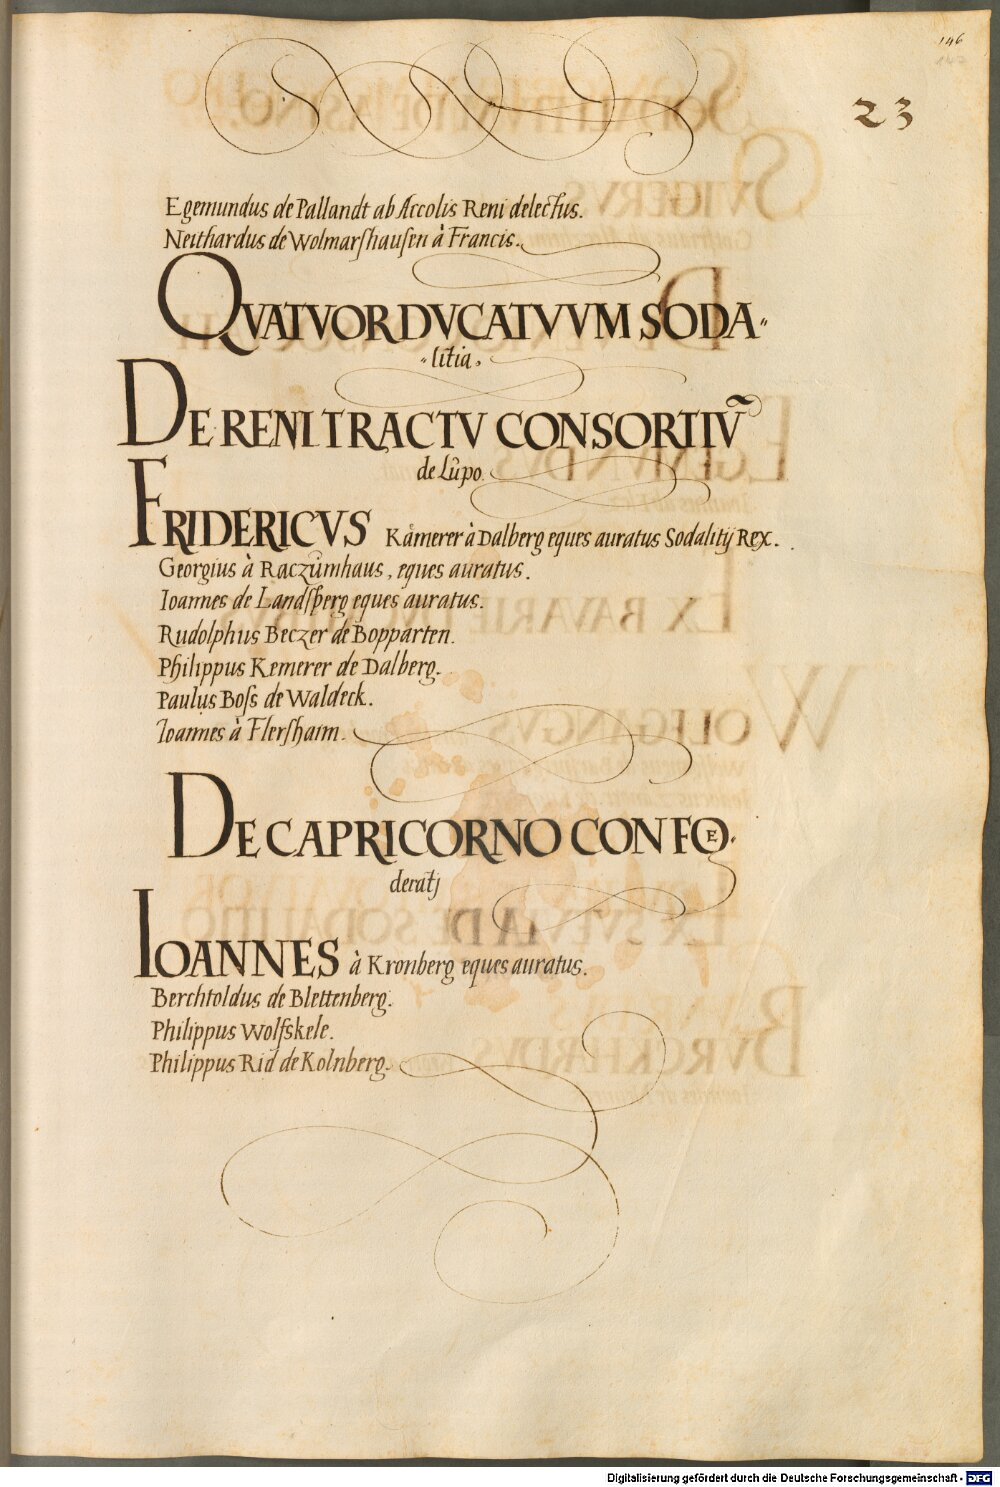 146
147
23
Egemundus de Pallandt ab Accolis Reni delectus.
Neithardus de Wolmarshausen à Francis.
QVATVOR DVCATVVM SODA-
-litia.
DE RENI TRACTV CONSORTIṼ
de Lupo.
FRIDERICVS Kamerer à Dalberg eques auratus Sodalitij Rex.
Georgius à Raczumhaus, eques auratus.
Ioannes de Landsperg eques auratus.
Rudolphus Beczer de Bopparten.
Philippus Kemerer de Dalberg.
Paulus Boss de Waldeck.
Ioannes à Flershaim.
DE CAPRICORNO CONFOE-
deratj
IOANNES à Kronberg eques auratus.
Berchtoldus de Blettenberg.
Philippus Wolfskele.
Philippus Rid de Kolnberg.
Digitalisierung gefördert durch die Deutsche Forschungsgemeinschaft - DFG